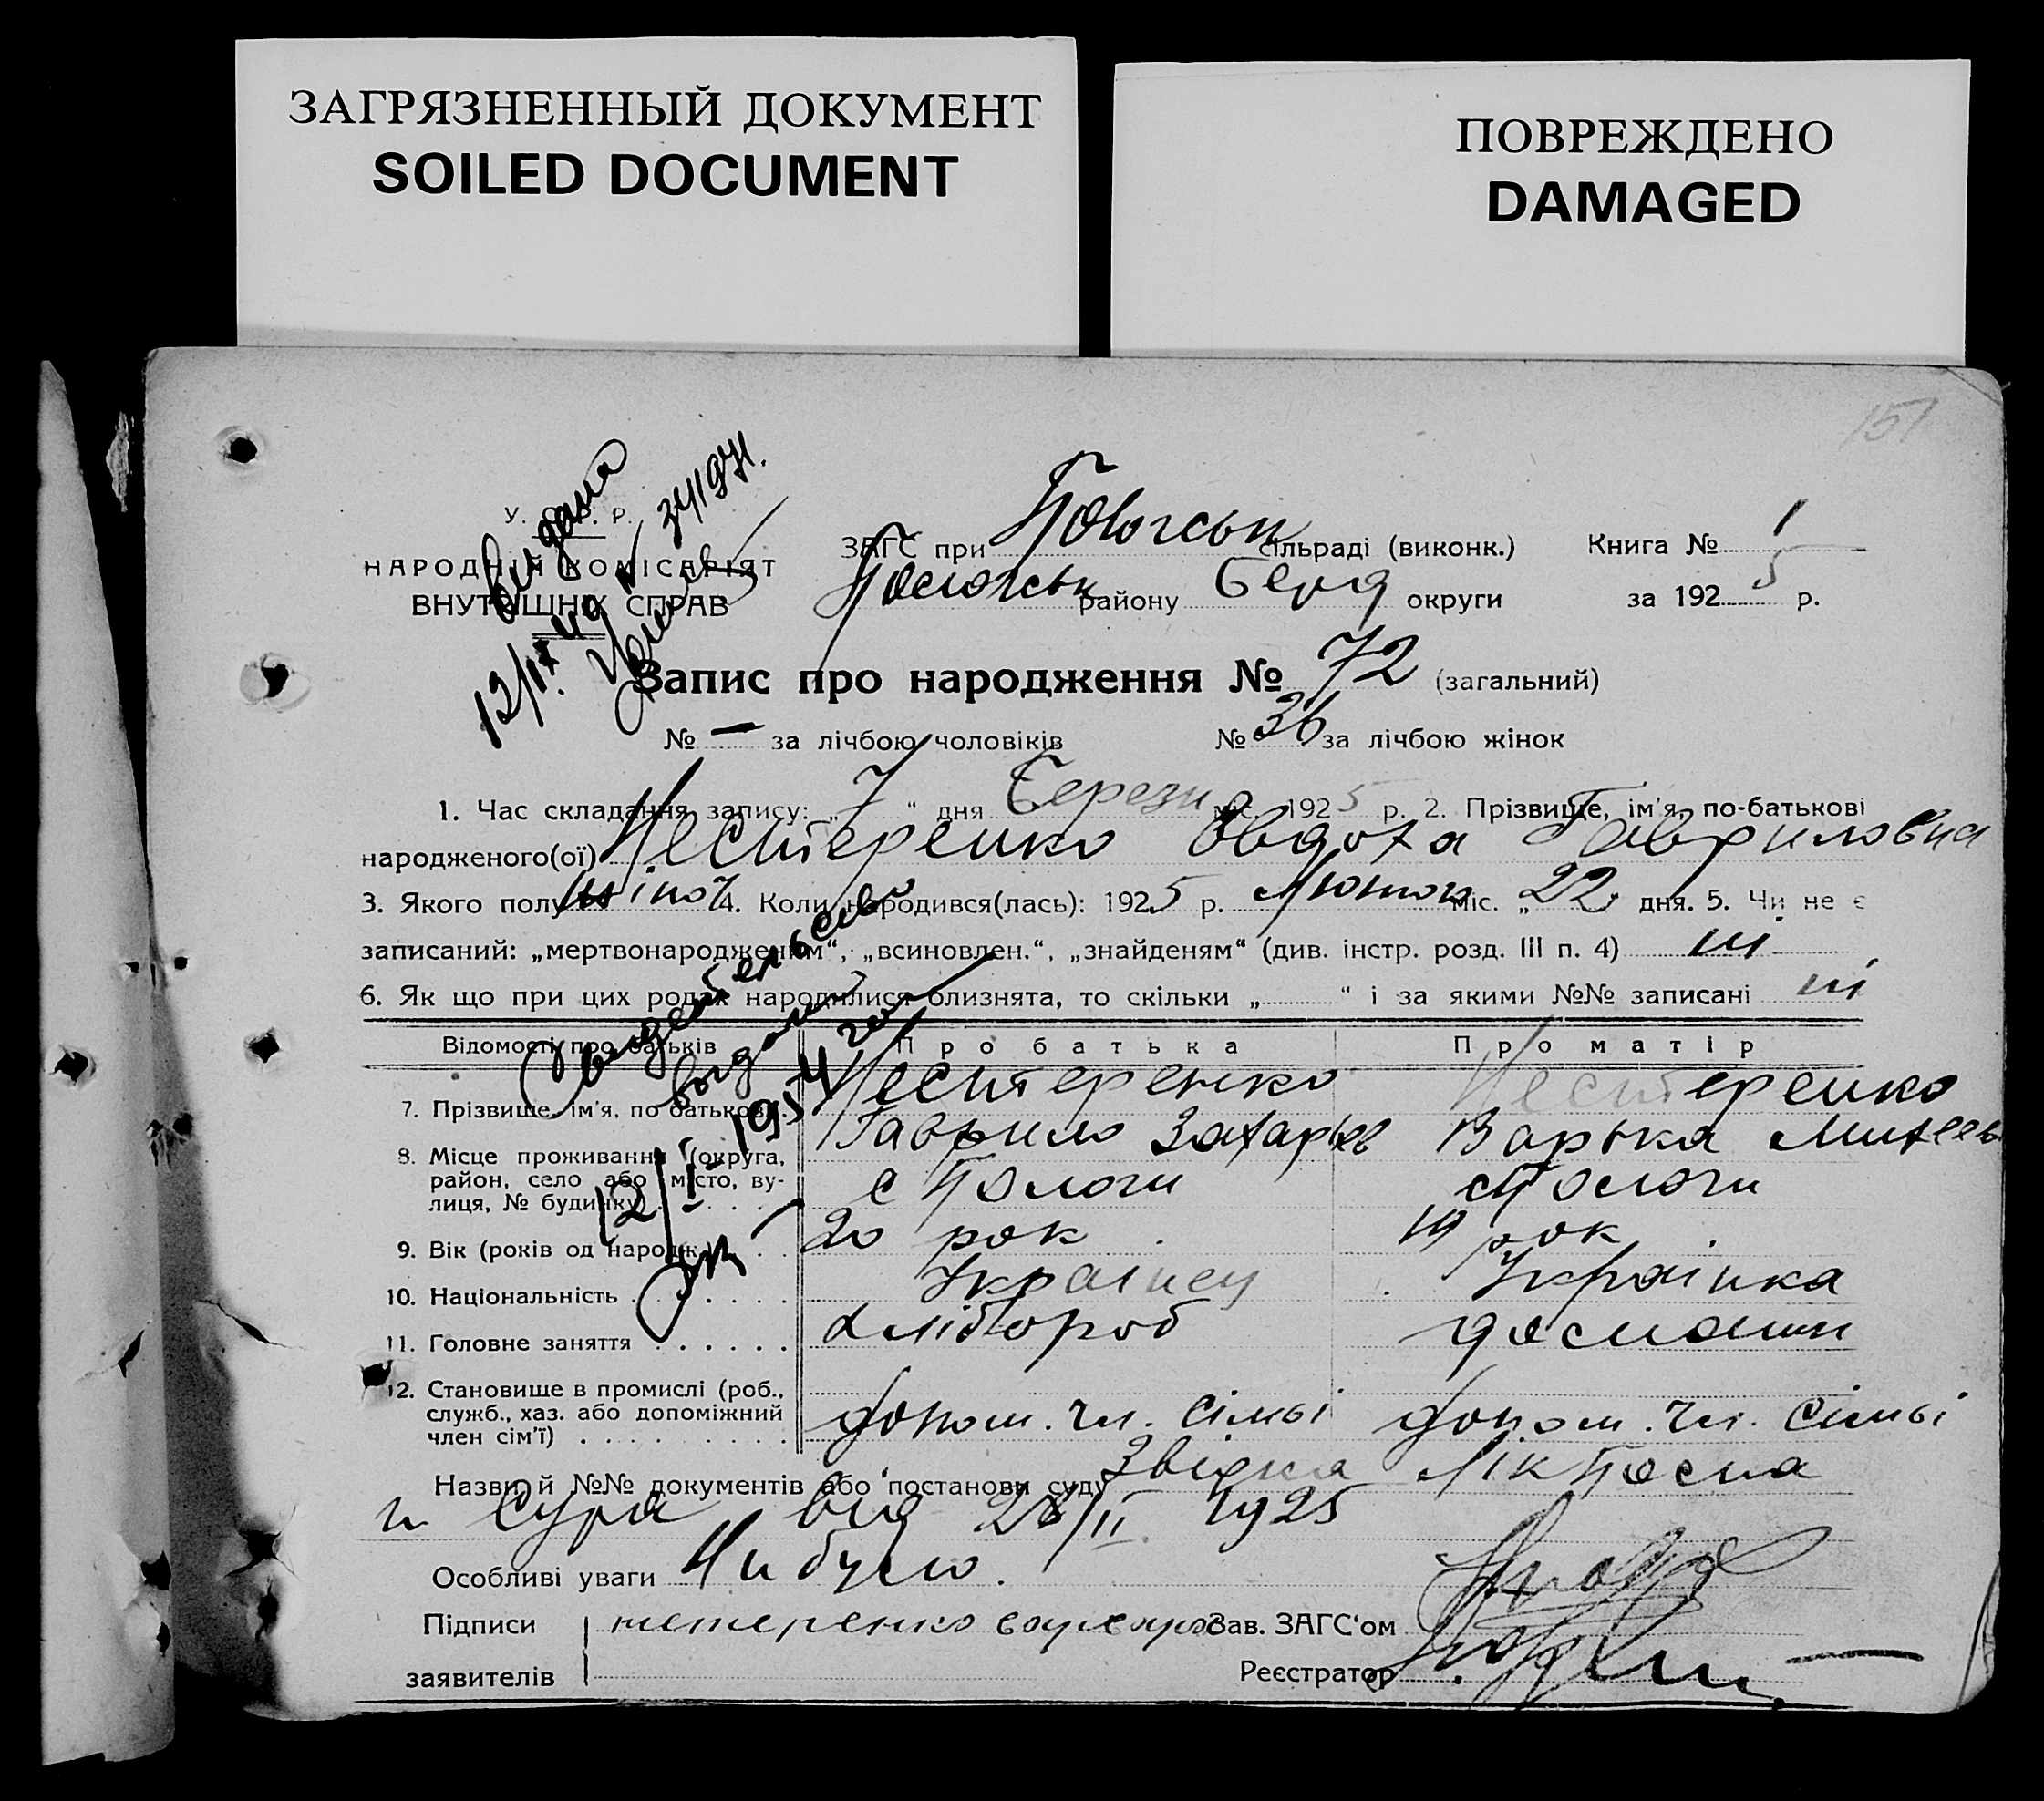 ЗАГРЯЗНЕННЫЙ ДОКУМЕНТ
SOILED DOCUMENT
ПОВРЕЖДЕНО
DAMAGED
151
У. С. Р. Р.
НАРОДНІЙ КОМІСАРІЯТ
ВНУТРІШНІХ СПРАВ
ЗАГС при сільраді (виконк.) Книга № 1
району Берд округи за 1925 р.
Запис про народження № 72 (загальний)
№ — за лічбою чоловіків № 36 за лічбою жінок
1. Час складання запису: „7“ дня Березня міс. 1925 р. 2. Прізвище, ім'я, по-батькові
народженого(ої) Нестеренко Овдоха Гавриловна
3. Якого полу жіноч 4. Коли народився(лась): 1925 р. Лютого міс. „22 дня. 5. Чи не є
записаний: „мертвонародженим“, „всиновлен.“, „знайденям“ (див. інстр. розд. III п. 4) ні
6. Як що при цих родах народилися близнята, то скільки „ “ і за якими №№ записані ні
Відомості про батьків Про батька Про матір
7. Прізвище, ім'я, по батькові. Нестеренко Нестеренко
Гаврило Захарьев Варька Михеев
8. Місце проживання (округа, район, село або місто, вулиця, № будинку) с Пологи с Пологи
9. Вік (років од народж.) 20 рок 19 рок
10. Національність Украінец Украінка
11. Головне заняття хлібороб домашн
12. Становище в промислі (роб., служб., хаз. або допоміжний член сім'ї) допом. чл. сімьі допом. чл. сімьі
Назви й №№ документів або постанови суду Звідка
від 28/II 1925
Особливі уваги Ни було.
Підписи
заявителів
Зав. ЗАГС'ом
Реєстратор
видана
Свидетельство
выдано
12/I-1954 год